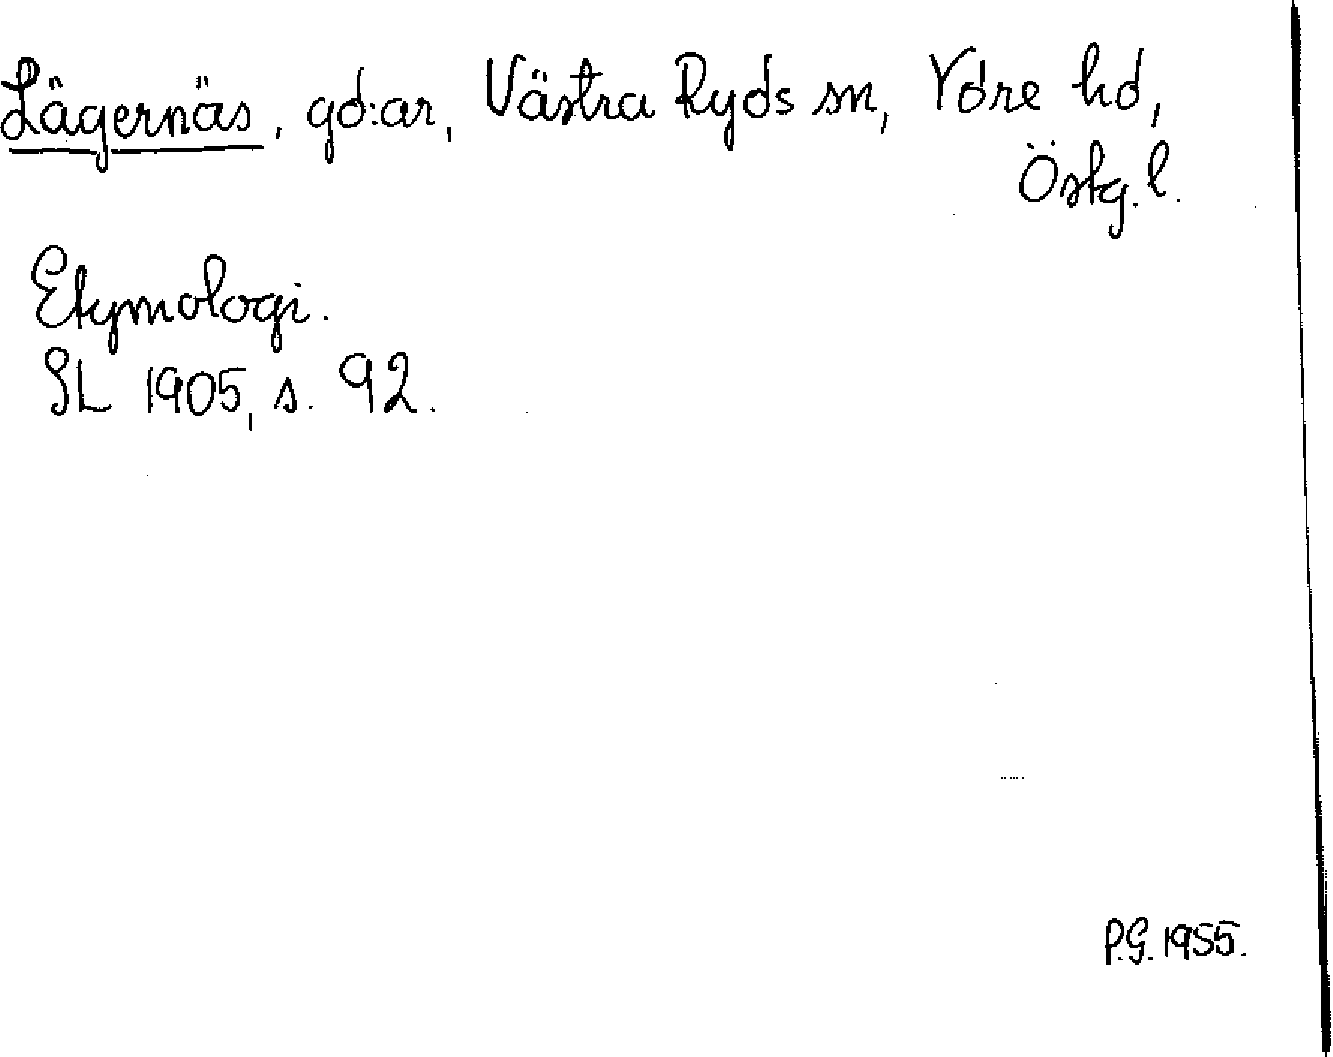 Lägernäs, gd:ar, Västra Ryds sn, Ydre hd,
Östg. l.
Etymologi.
SL 1905, s. 92.
P.G. 1955.